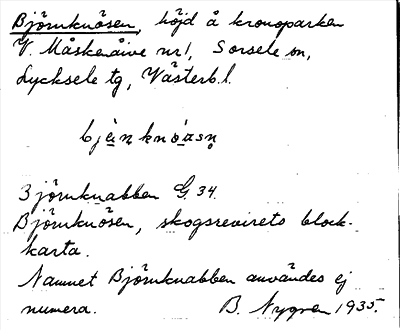 Björnknösen, höjd å kronoparken
V. Måskenåive nr 1, Sorsele sn,
Lycksele tg, Västerb.l.
Björnknabben G. 34.
Björnknösen, skogsrevirets block-
karta.
Namnet Björnknabben användes ej
numera. B. Nygren 1935.